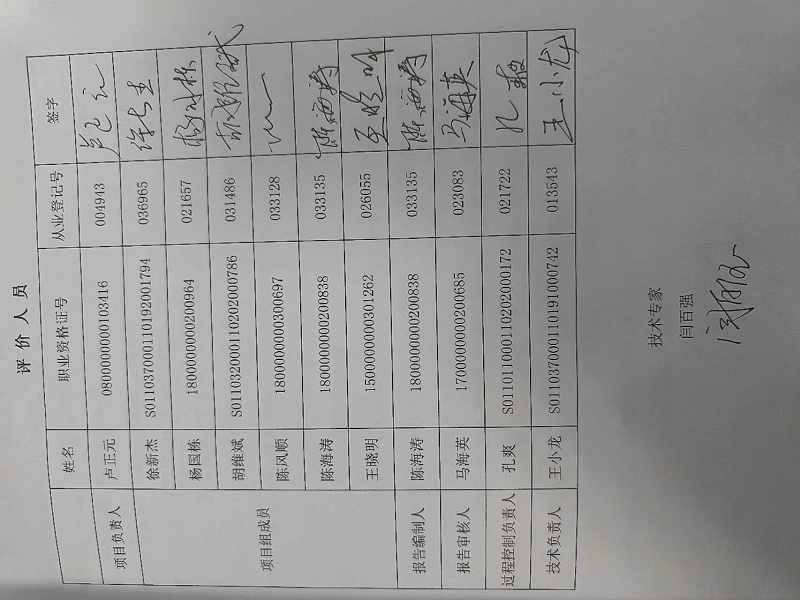 评价人员
姓名 职业资格证号 从业登记号 签字
项目负责人 卢正元 0800000000103416 004943
项目组成员 徐新杰 S011037000110192001794 036965
杨国栋 1800000000200964 021657
胡维斌 S011032000110202000786 031486
陈风顺 1800000000300697 033128
陈海涛 1800000000200838 033135 陈海涛
王晓明 1500000000301262 026055 王晓明
报告编制人 陈海涛 1800000000200838 033135 陈海涛
报告审核人 马海英 1700000000200685 023083 马海英
过程控制负责人 孔爽 S011011000110202000172 021722 孔爽
技术负责人 王小龙 S011037000110191000742 013543 王小龙
技术专家
闫百强